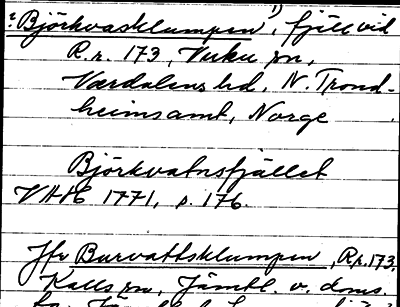 ? Björkvasklumpen 1), fjäll vid
R.r. 173, Vuku sn,
Værdalens hd, N. Trond-
heimsamt, Norge
Björkvatnsfjället
VHAH 1771, s. 176.
Jfr Burvattsklumpen, R.r. 173,
Kalls sn, Jämtl. v. doms.